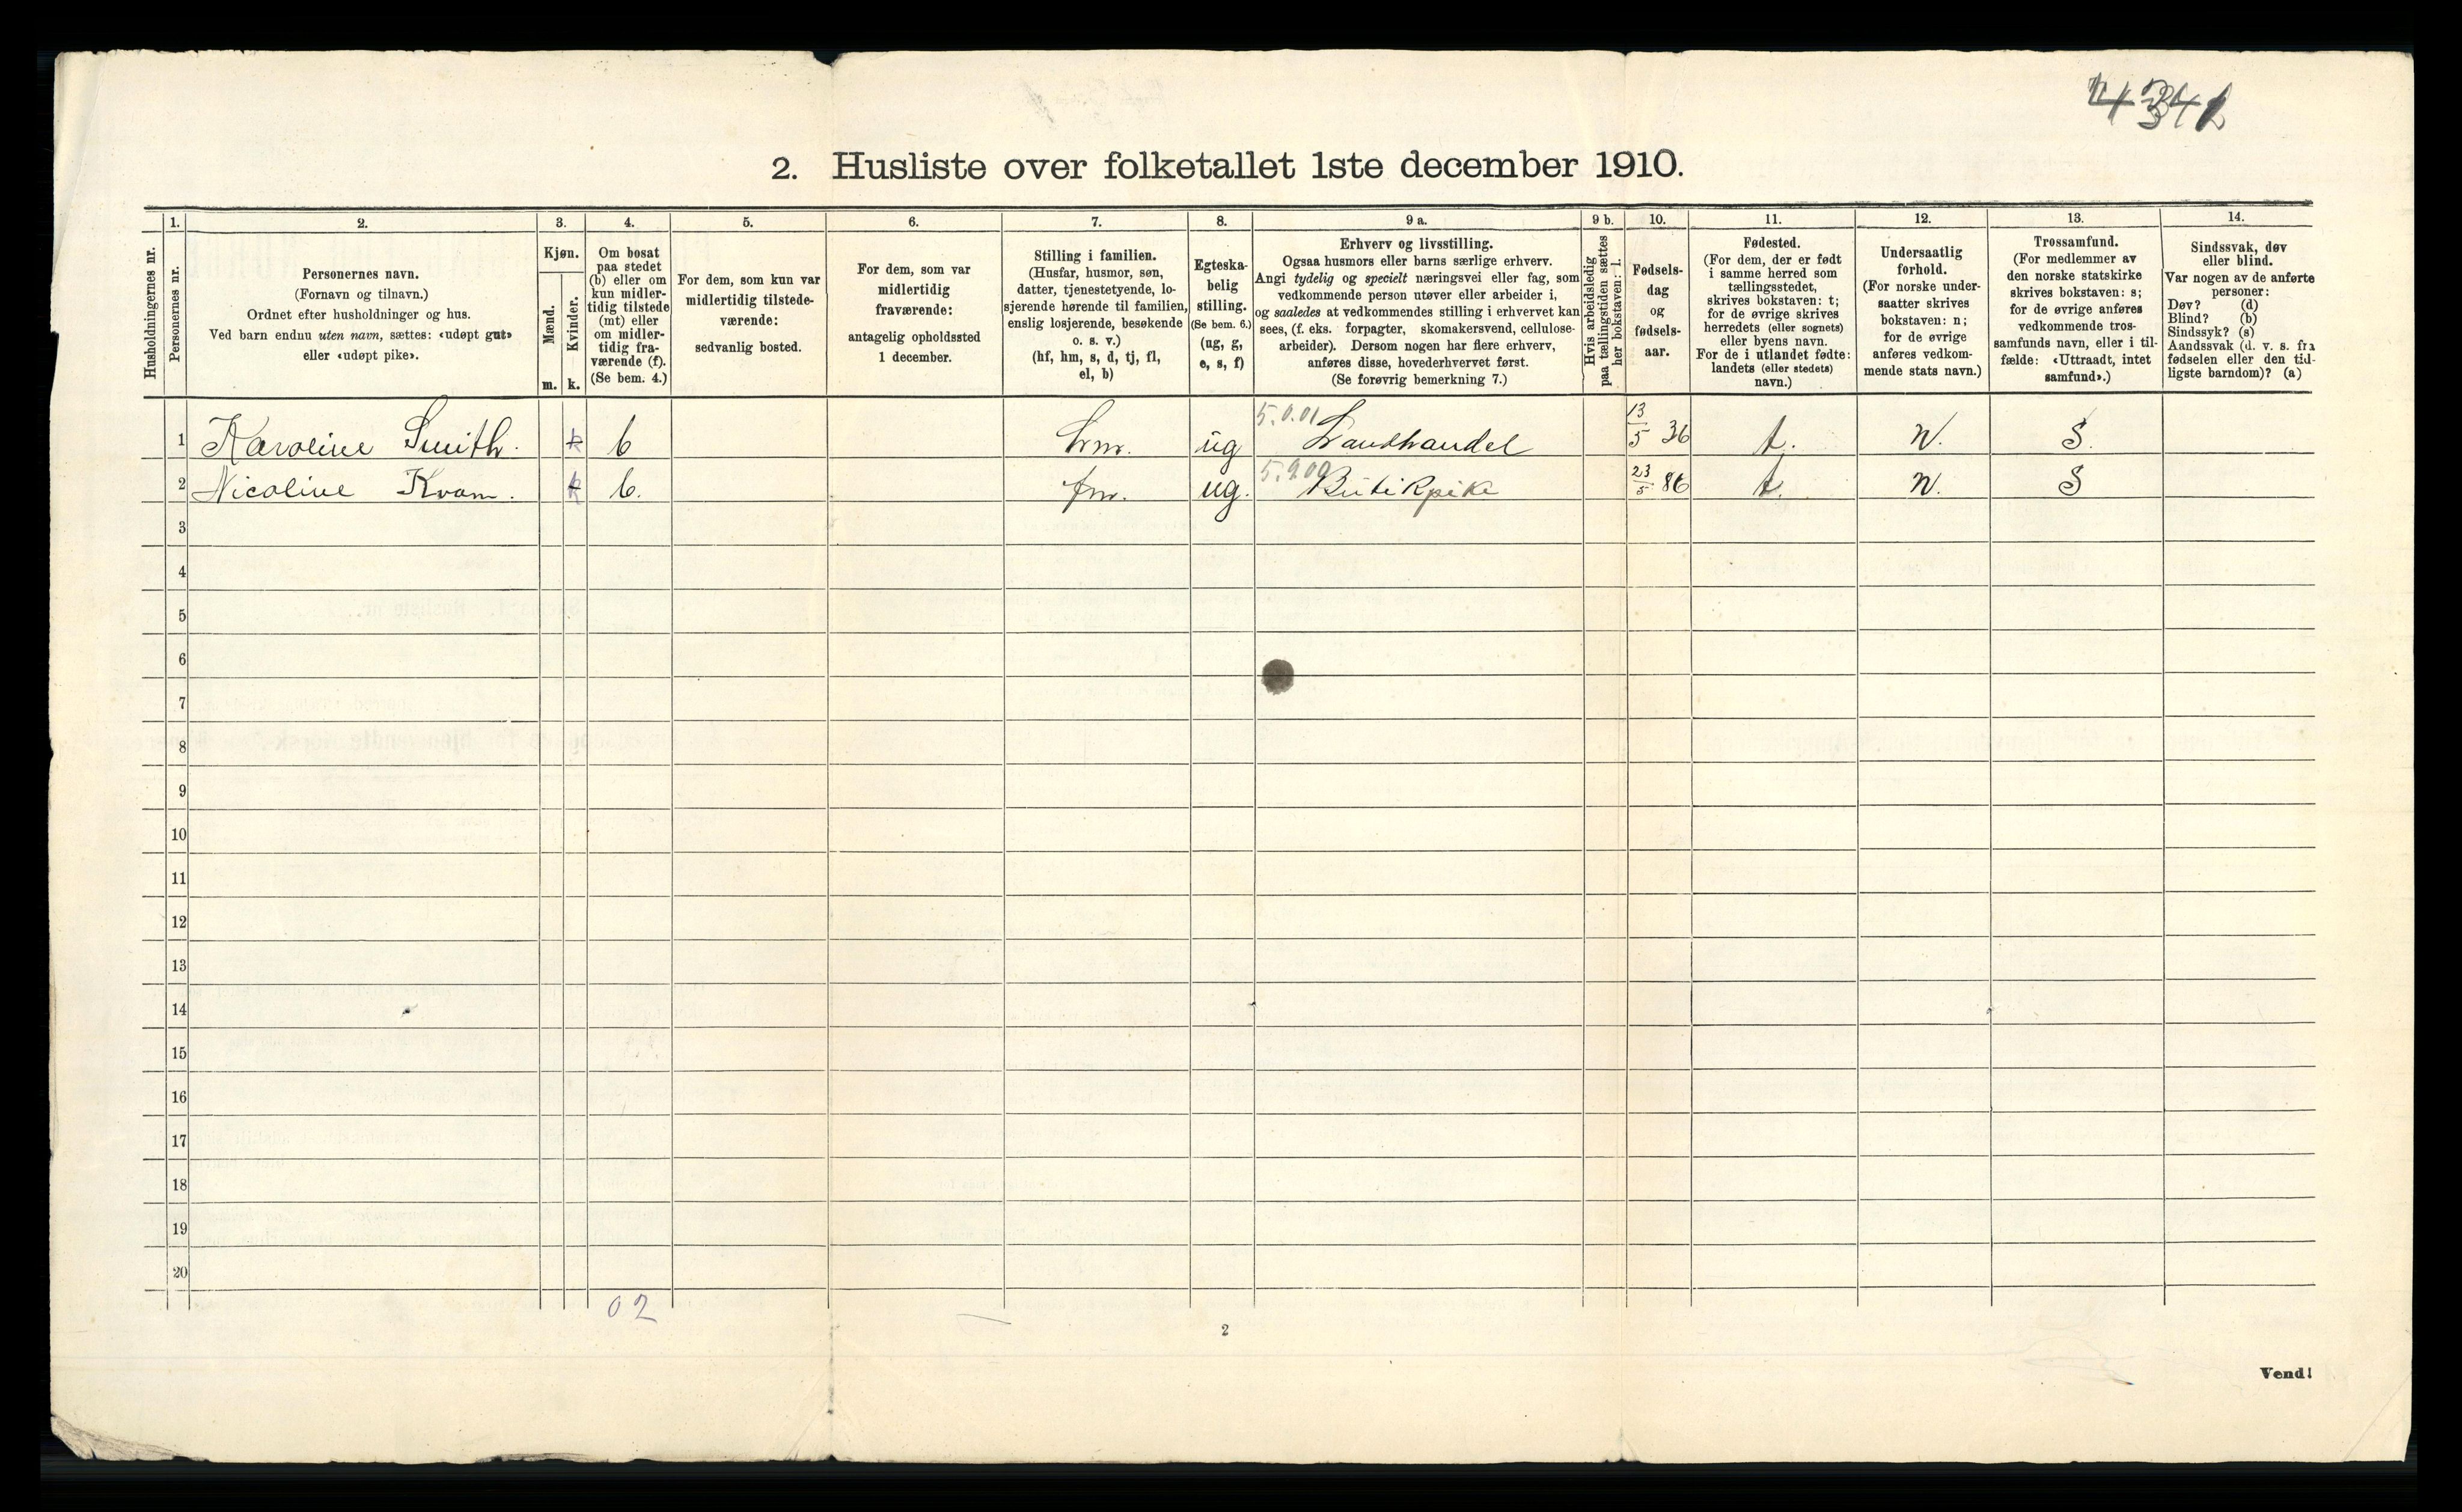 2. Husliste over folketallet 1ste december 1910.
Husholdningernes nr.
1.
Personernes nr.
2.
Personernes navn.
(Fornavn og tilnavn.)
Ordnet efter husholdninger og hus.
Ved barn endnu uten navn, sættes: «udøpt gut»
eller «udøpt pike».
3.
Kjøn.
Mænd.
Kvinder.
m. k.
4.
Om bosat
paa stedet
(b) eller om
kun midler-
tidig tilstede
(mt) eller
om midler-
tidig fra-
værende (f).
(Se bem. 4.)
5.
For dem, som kun var
midlertidig tilstede-
værende:
sedvanlig bosted.
6.
For dem, som var
midlertidig
fraværende:
antagelig opholdssted
1 december.
7.
Stilling i familien.
(Husfar, husmor, søn,
datter, tjenestetyende, lo-
sjerende hørende til familien,
enslig losjerende, besøkende
o. s. v.)
(hf, hm, s, d, tj, fl,
el, b)
8.
Egteska-
belig
stilling.
(Se bem. 6.)
(ug, g,
e, s, f)
9 a.
Erhverv og livsstilling.
Ogsaa husmors eller barns særlige erhverv.
Angi tydelig og specielt næringsvei eller fag, som
vedkommende person utøver eller arbeider i,
og saaledes at vedkommendes stilling i erhvervet kan
sees, (f. eks. forpagter, skomakersvend, cellulose-
arbeider). Dersom nogen har flere erhverv,
anføres disse, hovederhvervet først.
(Se forøvrig bemerkning 7.)
9 b.
Hvis arbeidsledig
paa tællingstiden sættes
her bokstaven: l.
10.
Fødsels-
dag
og
fødsels-
aar.
11.
Fødested.
(For dem, der er født
i samme herred som
tællingsstedet,
skrives bokstaven: t;
for de øvrige skrives
herredets (eller sognets)
eller byens navn.
For de i utlandet fødte:
landets (eller stedets)
navn.)
12.
Undersaatlig
forhold.
(For norske under-
saatter skrives
bokstaven: n;
for de øvrige
anføres vedkom-
mende stats navn.)
13.
Trossamfund.
(For medlemmer av
den norske statskirke
skrives bokstaven: s;
for de øvrige anføres
vedkommende tros-
samfunds navn, eller i til-
fælde: «Uttraadt, intet
samfund».)
14.
Sindssvak, døv
eller blind.
Var nogen av de anførte
personer:
Døv? (d)
Blind? (b)
Sindssyk? (s)
Aandssvak (d. v. s. fra
fødselen eller den tid-
ligste barndom)? (a)
1 Karoline Smith. k b hm. ug 5.0.01 Landhandel 13/5 36 t. n. S.
2 Nicoline Kvam. k b. fm. ug. 5.900 Butikpike 23/5 86 t. n. S
3
4
5
6
7
8
9
10
11
12
13
14
15
16
17
18
19
20
0 2
2
Vend!